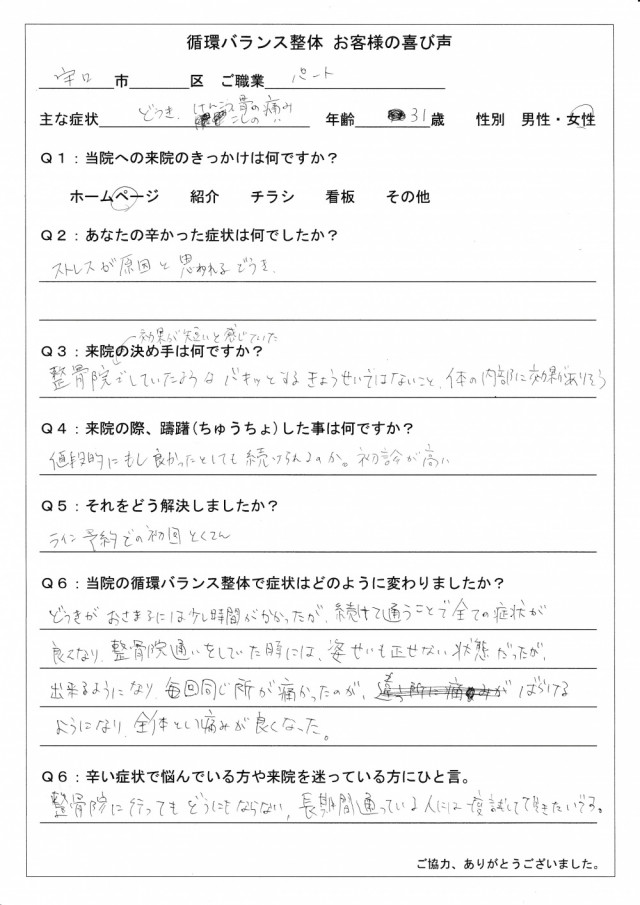 循環バランス整体 お客様の喜び声
守口 市 区 ご職業 パート
主な症状 どうき、けんこう骨の痛み 年齢 31 歳 性別 男性・女性
こしの 〃
Q1：当院への来院のきっかけは何ですか？
ホームページ 紹介 チラシ 看板 その他
Q2：あなたの辛かった症状は何でしたか？
ストレスが原因と思われるどうき、
効果が短いと感じていた
Q3：来院の決め手は何ですか？
整骨院でしていたような バキッとする きょうせいではないこと、体の内部に効果がありそう
Q4：来院の際、躊躇(ちゅうちょ)した事は何ですか？
値段的にもし良かったとしても続けられるのか。初診が高い
Q5：それをどう解決しましたか？
ライン予約での初回とくてん
Q6：当院の循環バランス整体で症状はどのように変わりましたか？
どうきがおさまるには少し時間がかかったが、続けて通うことで全ての症状が
良くなり、整骨院通いをしていた時には、姿せいも正せない状態だったが、
出来るようになり、毎回同じ所が痛かったのが、ばらける
ようになり、全体とい痛みが良くなった。
Q6：辛い症状で悩んでいる方や来院を迷っている方にひと言。
整骨院に行ってもどうにもならない、長期間通っている人には一度試して頂きたいです。
ご協力、ありがとうございました。